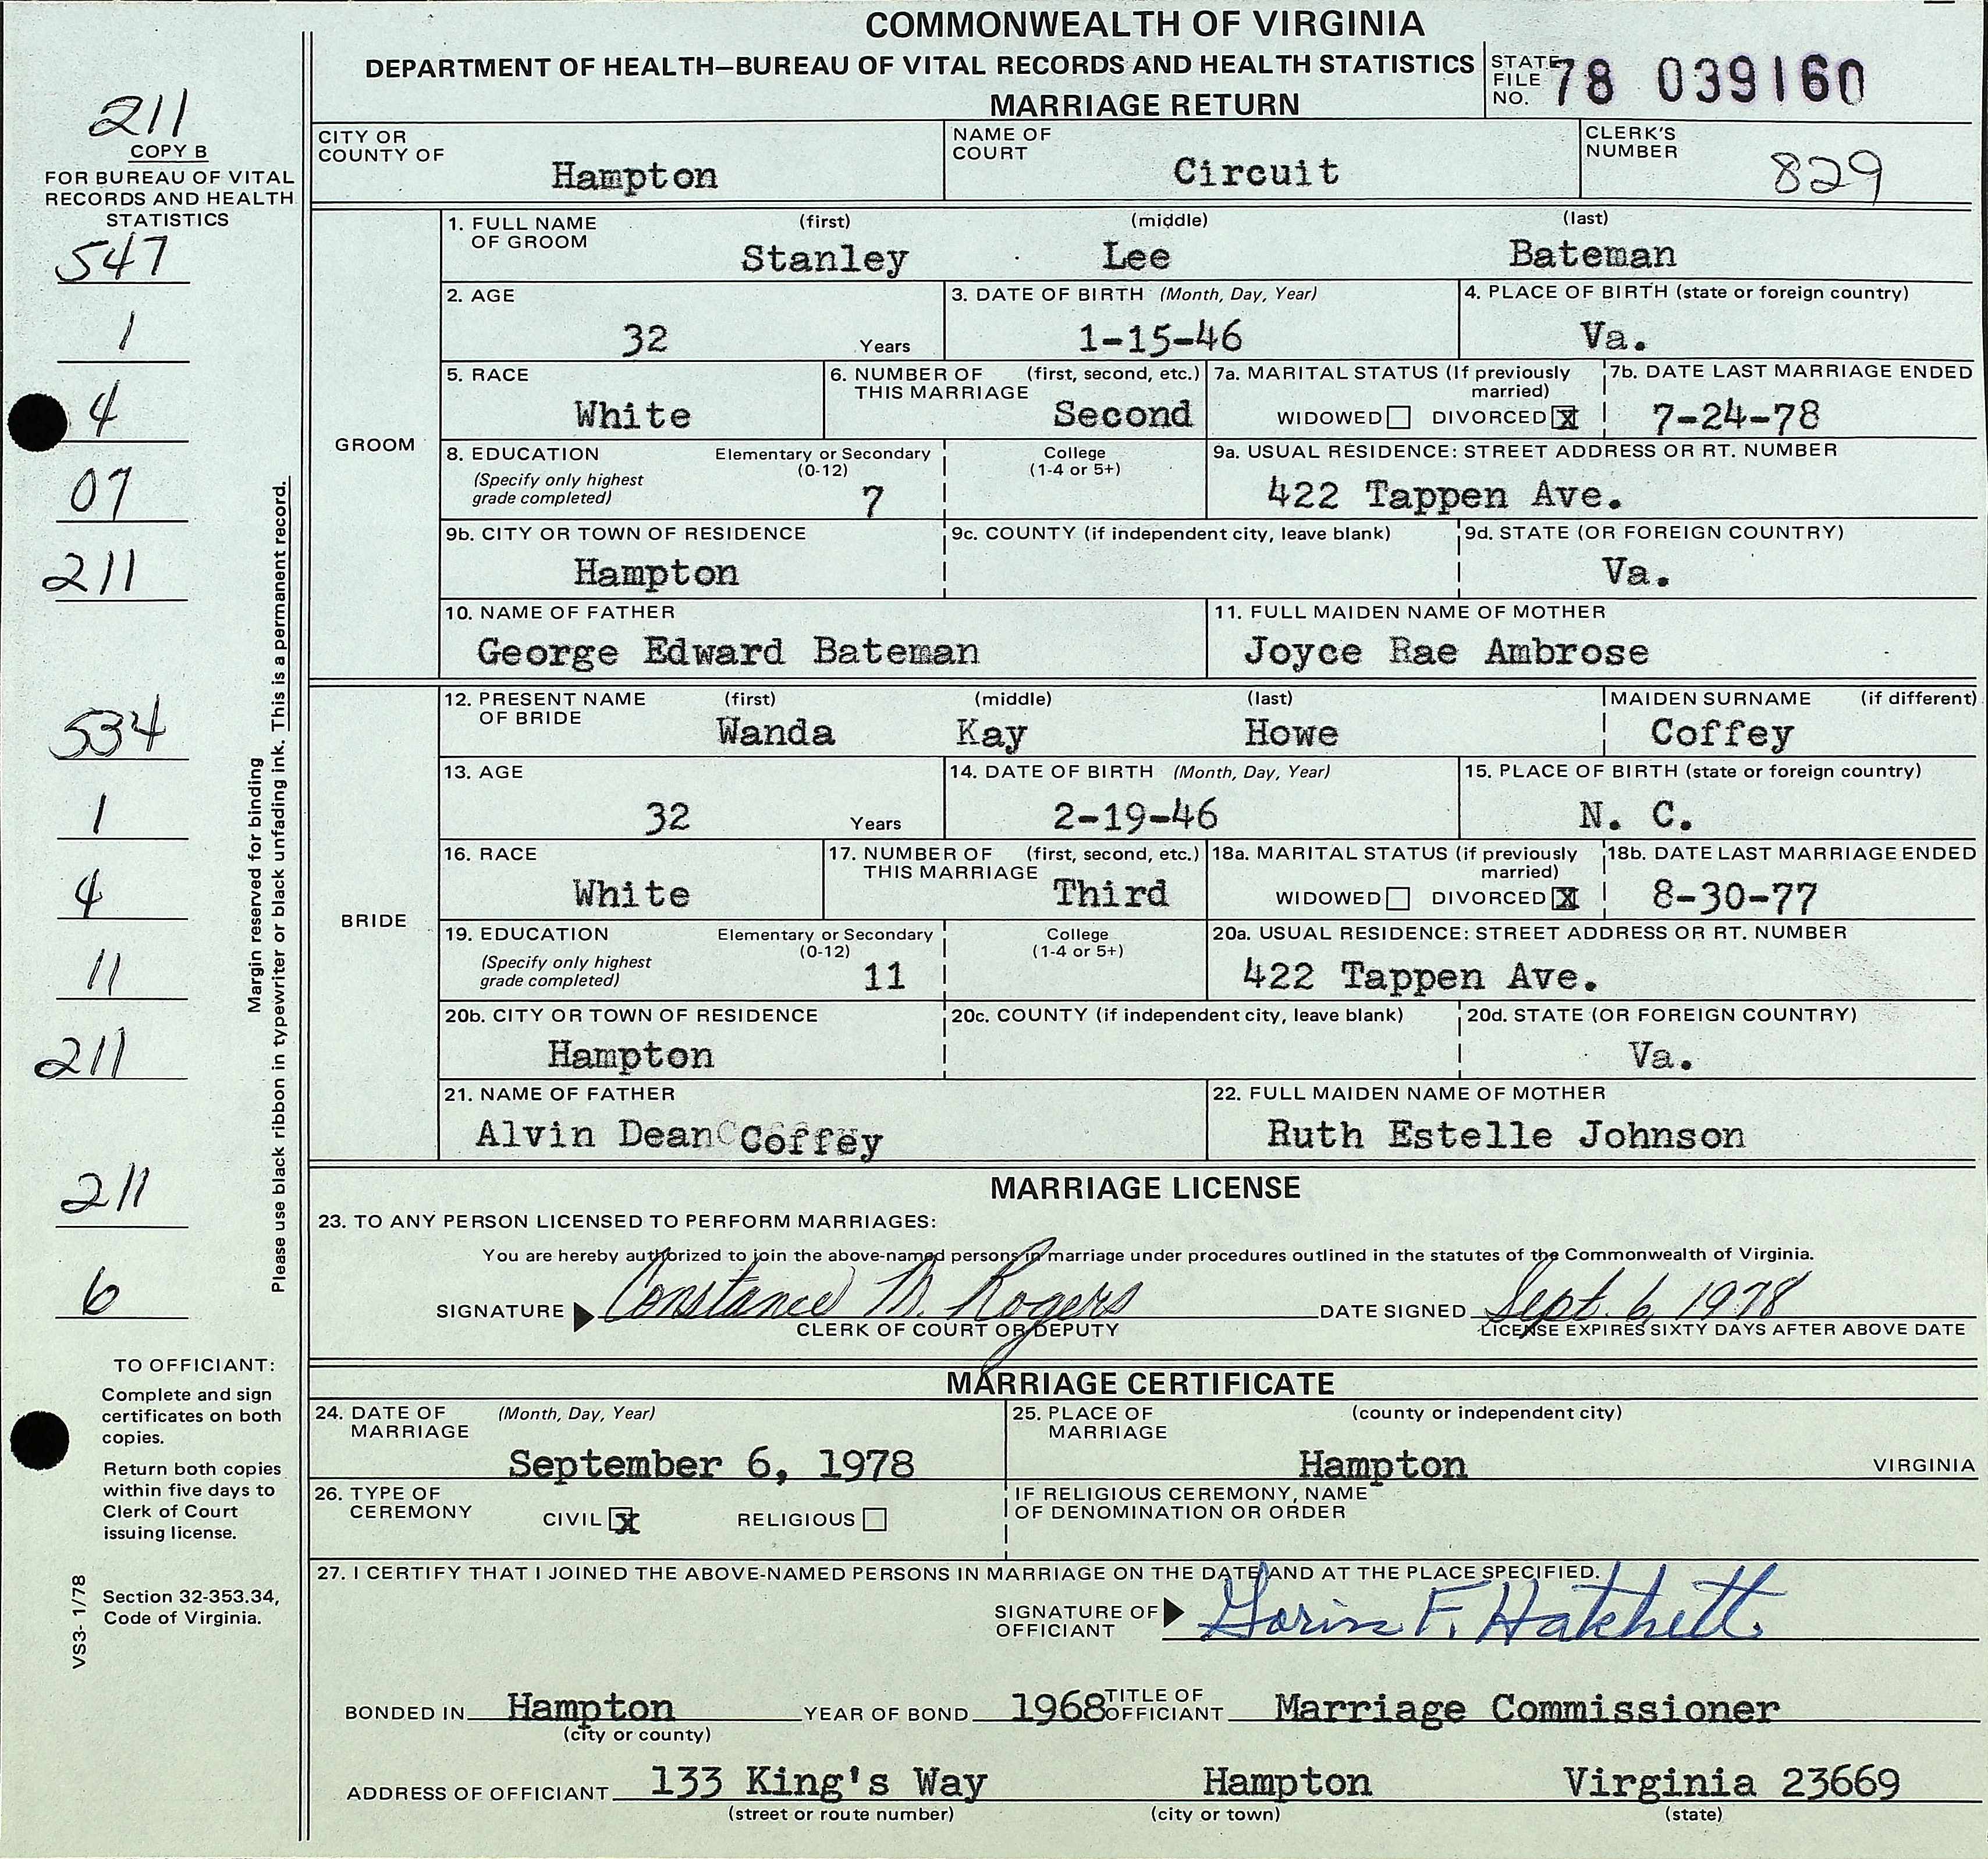 COMMONWEALTH OF VIRGINIA
DEPARTMENT OF HEALTH—BUREAU OF VITAL RECORDS AND HEALTH STATISTICS
MARRIAGE RETURN
STATE FILE NO. 78 039160
211
COPY B
FOR BUREAU OF VITAL
RECORDS AND HEALTH
STATISTICS
547
1
4
07
211
534
1
4
11
211
211
6
Margin reserved for binding
Please use black ribbon in typewriter or black unfading ink. This is a permanent record.
TO OFFICIANT:
Complete and sign
certificates on both
copies.
Return both copies
within five days to
Clerk of Court
issuing license.
Section 32-353.34,
Code of Virginia.
VS3- 1/78
CITY OR COUNTY OF Hampton
NAME OF COURT Circuit
CLERK'S NUMBER 829
GROOM
1. FULL NAME OF GROOM (first) (middle) (last)
Stanley Lee Bateman
2. AGE 32 Years
3. DATE OF BIRTH (Month, Day, Year) 1-15-46
4. PLACE OF BIRTH (state or foreign country) Va.
5. RACE White
6. NUMBER OF THIS MARRIAGE (first, second, etc.) Second
7a. MARITAL STATUS (If previously married)
WIDOWED DIVORCED X
7b. DATE LAST MARRIAGE ENDED 7-24-78
8. EDUCATION (Specify only highest grade completed)
Elementary or Secondary (0-12) 7
College (1-4 or 5+)
9a. USUAL RESIDENCE: STREET ADDRESS OR RT. NUMBER
422 Tappen Ave.
9b. CITY OR TOWN OF RESIDENCE Hampton
9c. COUNTY (if independent city, leave blank)
9d. STATE (OR FOREIGN COUNTRY) Va.
10. NAME OF FATHER
George Edward Bateman
11. FULL MAIDEN NAME OF MOTHER
Joyce Rae Ambrose
BRIDE
12. PRESENT NAME OF BRIDE (first) (middle) (last) MAIDEN SURNAME (if different)
Wanda Kay Howe Coffey
13. AGE 32 Years
14. DATE OF BIRTH (Month, Day, Year) 2-19-46
15. PLACE OF BIRTH (state or foreign country) N. C.
16. RACE White
17. NUMBER OF THIS MARRIAGE (first, second, etc.) Third
18a. MARITAL STATUS (if previously married)
WIDOWED DIVORCED X
18b. DATE LAST MARRIAGE ENDED 8-30-77
19. EDUCATION (Specify only highest grade completed)
Elementary or Secondary (0-12) 11
College (1-4 or 5+)
20a. USUAL RESIDENCE: STREET ADDRESS OR RT. NUMBER
422 Tappen Ave.
20b. CITY OR TOWN OF RESIDENCE Hampton
20c. COUNTY (if independent city, leave blank)
20d. STATE (OR FOREIGN COUNTRY) Va.
21. NAME OF FATHER
Alvin Dean Coffey
22. FULL MAIDEN NAME OF MOTHER
Ruth Estelle Johnson
MARRIAGE LICENSE
23. TO ANY PERSON LICENSED TO PERFORM MARRIAGES:
You are hereby authorized to join the above-named persons in marriage under procedures outlined in the statutes of the Commonwealth of Virginia.
SIGNATURE Constance M. Rogers DATE SIGNED Sept. 6, 1978
CLERK OF COURT OR DEPUTY LICENSE EXPIRES SIXTY DAYS AFTER ABOVE DATE
MARRIAGE CERTIFICATE
24. DATE OF MARRIAGE (Month, Day, Year)
September 6, 1978
25. PLACE OF MARRIAGE (county or independent city)
Hampton VIRGINIA
26. TYPE OF CEREMONY CIVIL X RELIGIOUS
IF RELIGIOUS CEREMONY, NAME OF DENOMINATION OR ORDER
27. I CERTIFY THAT I JOINED THE ABOVE-NAMED PERSONS IN MARRIAGE ON THE DATE AND AT THE PLACE SPECIFIED.
SIGNATURE OF OFFICIANT F. Hatchett
BONDED IN Hampton YEAR OF BOND 1968 TITLE OF OFFICIANT Marriage Commissioner
(city or county)
ADDRESS OF OFFICIANT 133 King's Way Hampton Virginia 23669
(street or route number) (city or town) (state)